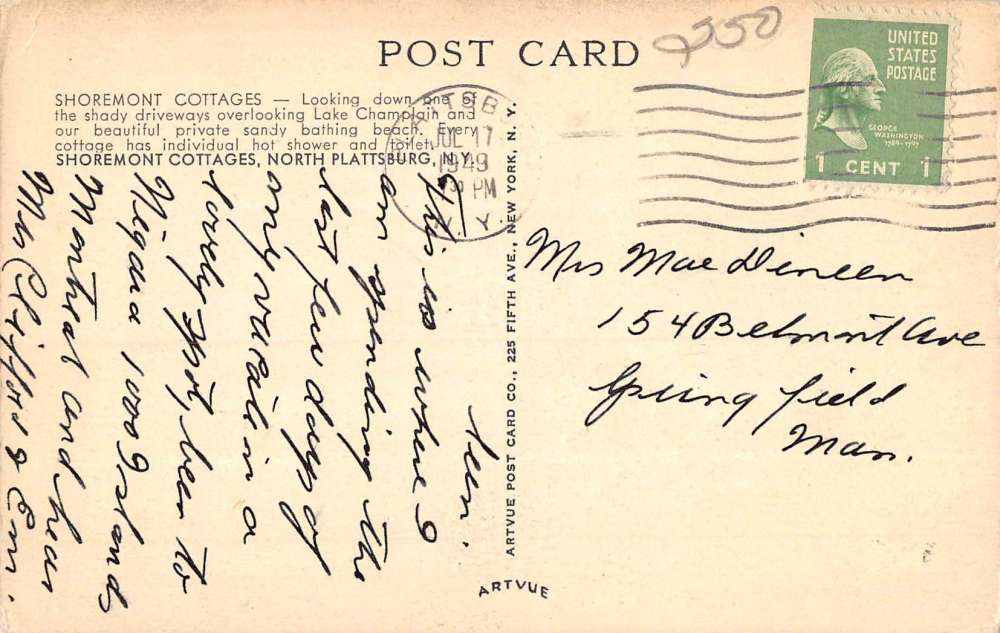 POST CARD
2550
UNITED
STATES
POSTAGE
GEORGE
WASHINGTON
1789-1797
1 CENT 1
SHOREMONT COTTAGES — Looking down one of
the shady driveways overlooking Lake Champlain and
our beautiful private sandy bathing beach. Every
cottage has individual hot shower and toilet.
SHOREMONT COTTAGES, NORTH PLATTSBURG, N.Y.
JUL 17
1949
PM
N. Y.
This is where I
am spending the
last few days of
my vacation in a
lovely spot, been to
Niagara 1000 Islands
Montreal and hear
Mrs Clifford & Em.
ARTVUE POST CARD CO., 225 FIFTH AVE., NEW YORK, N. Y.
Mrs Mae Dineen
154 Belmont Ave
Springfield
Mass.
ARTVUE